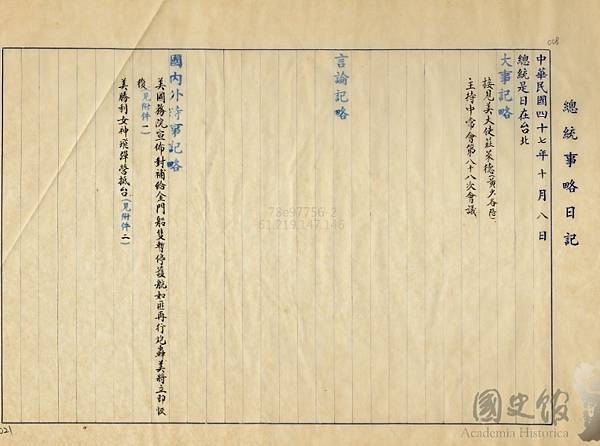 總統事略日記
中華民國四十七年十月八日
總統是日在台北
大事記略
接見美大使莊萊德(黃少谷陪)。
主持中常會第八十八次會議
言論記略
國內外時事記略
美國務院宣佈對補給金門船隻暫停護航如匪再行炮轟美將立即恢
復(見附件一)
美勝利女神飛彈營抵台(見附件二)
008
021
73e97756-2
61.219.147.146
國史館
Academia Historica